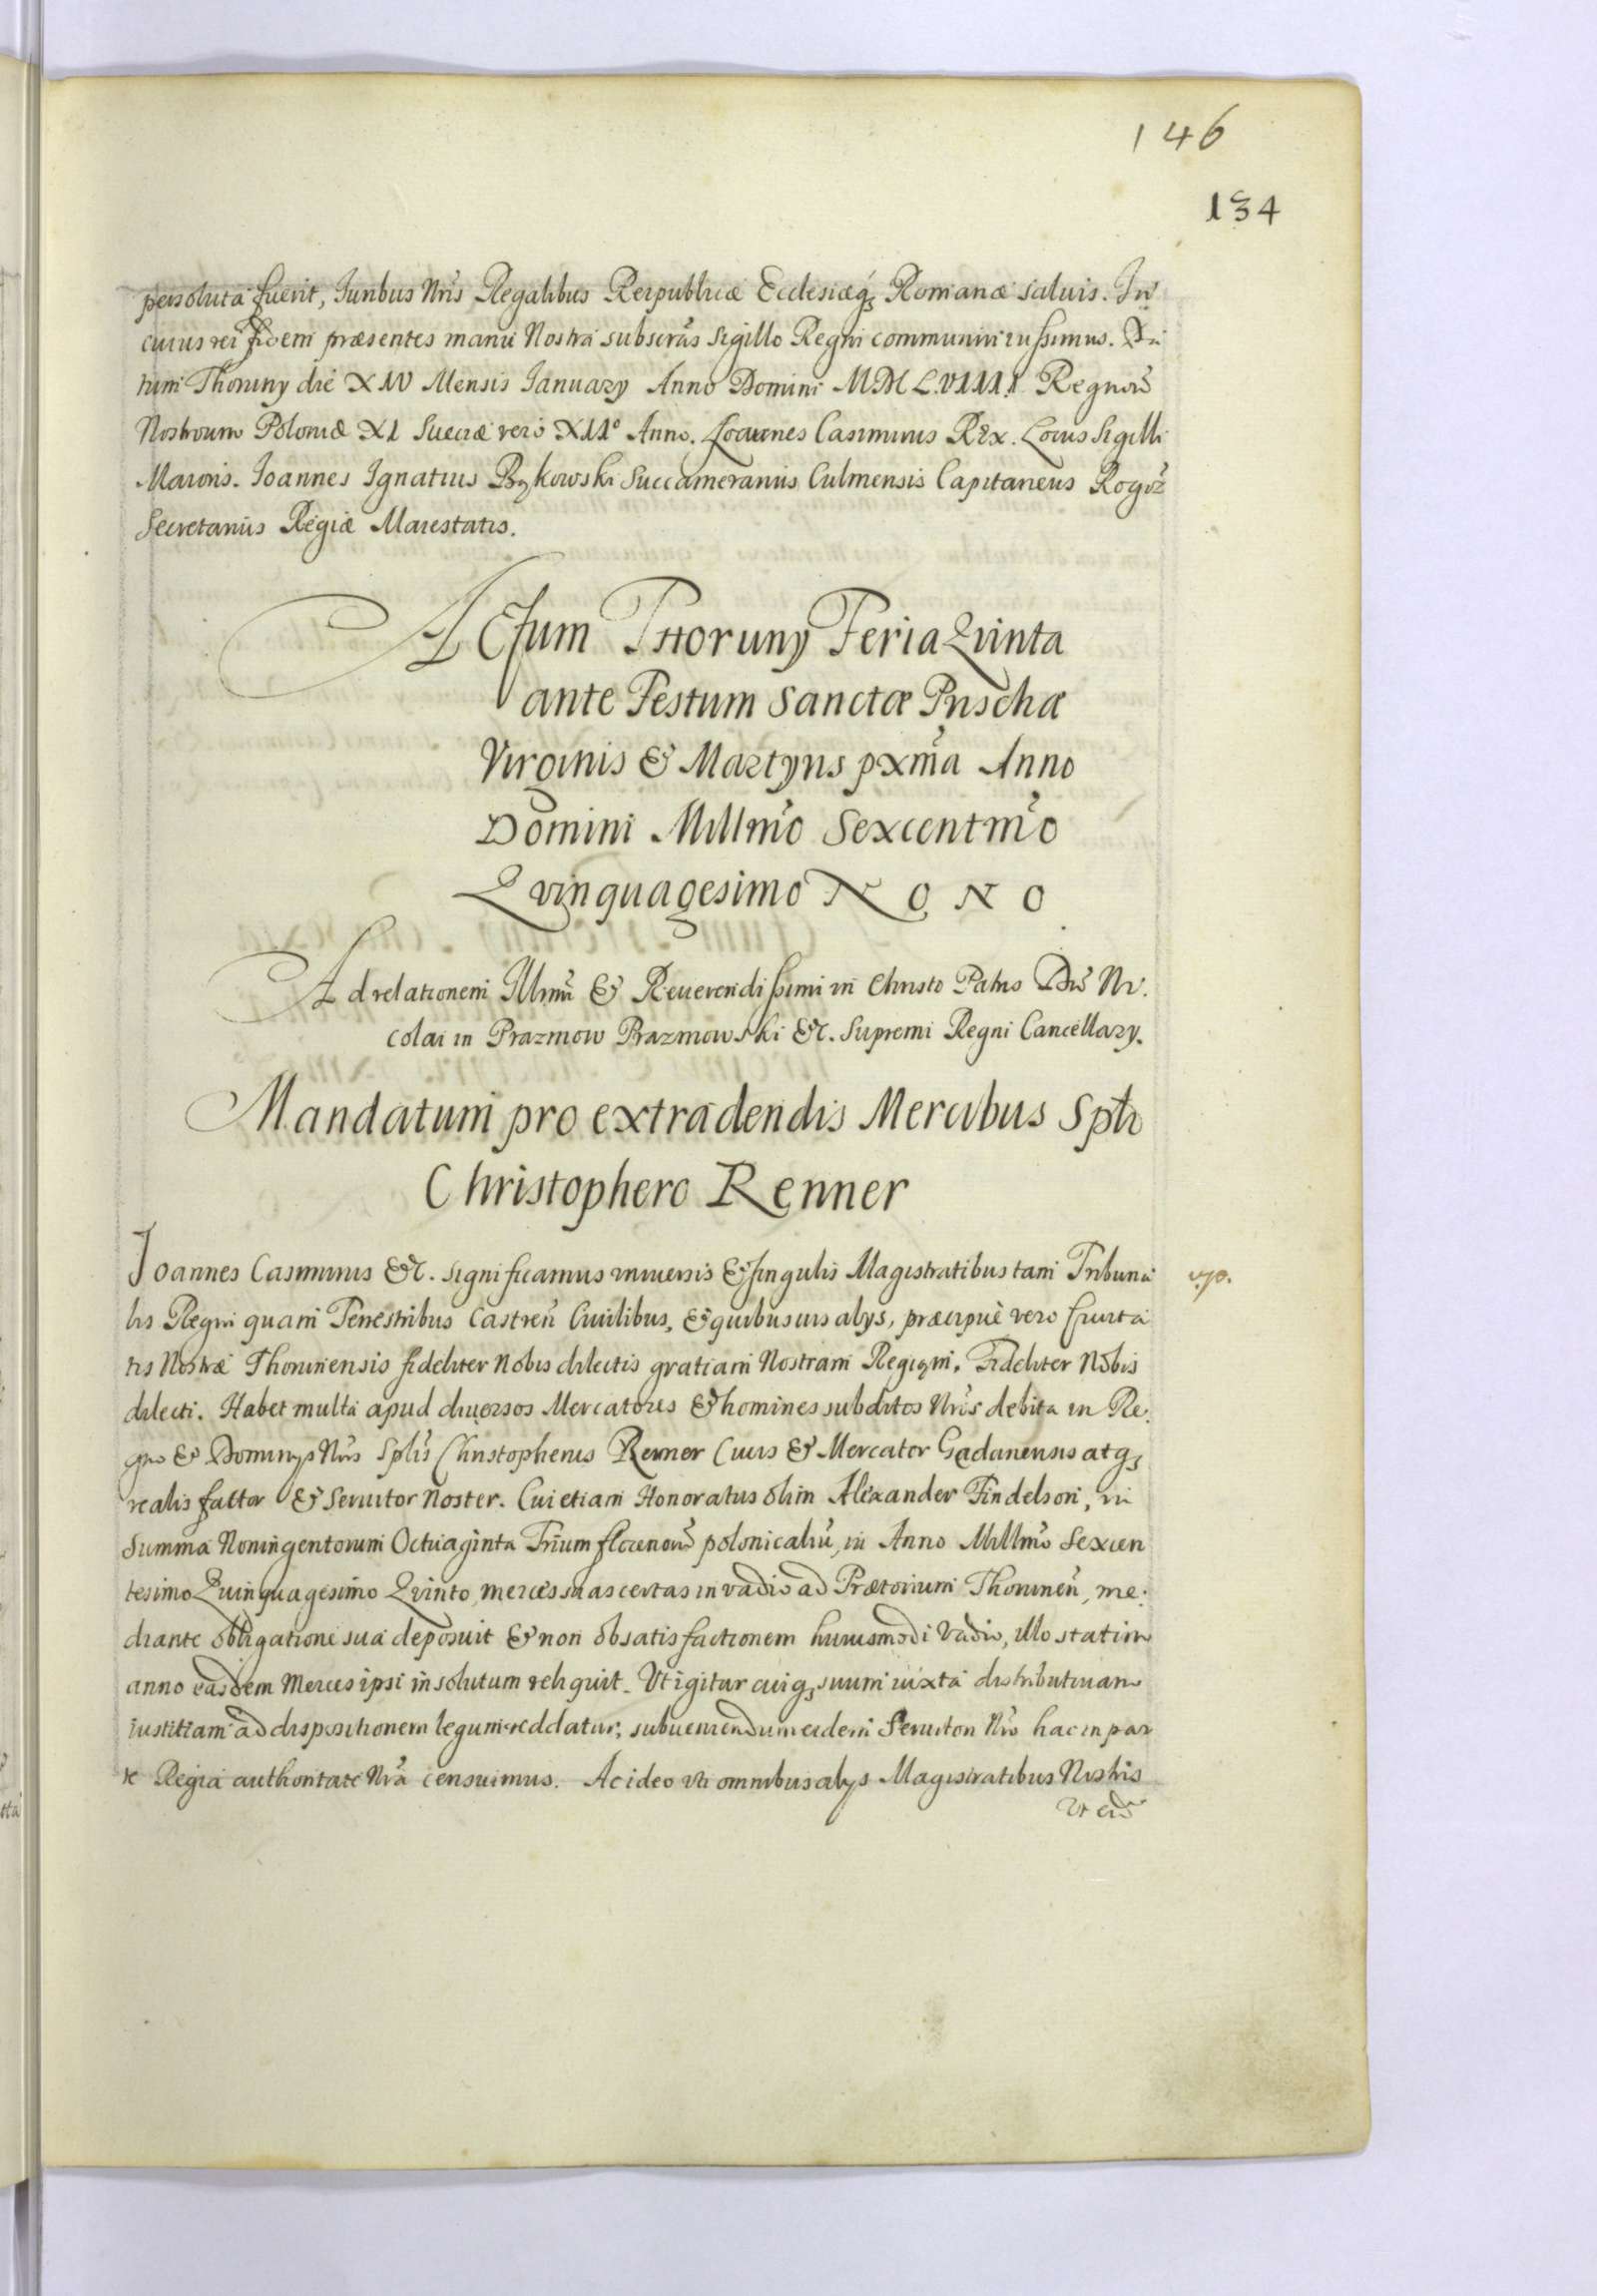 146
134
persoluta fuerit, Iuribus Nris Regalibus Reipublicæ Ecclesiæq3 Romanæ saluis. In
cuius rei fidem præsentes manu Nostra subscras Sigillo Regni communiri iussimus. Da
tum Thoruny die XIV Mensis January Anno Domini MDCLVIIII Regnor
Nostrorum Poloniæ XI Sueciæ vero XIIº Anno. Ioannes Casimirus Rex. Locus Sigilli
Maioris. Ioannes Ignatius Bąkowski Succamerarius Culmensis Capitaneus Rogoz
Secretarius Regiæ Maiestatis.
ACtum Thoruny Feria Qvinta
ante Festum Sanctæ Prischæ
Virginis & Martyris pxma Anno
Domini Millmo Sexcentmo
Qvinquagesimo NONO
Ad relationem Illmi & Reuerendissimi in Christo Patris Dni Ni.
colai in Prazmow Prazmowski &c. Supremi Regni Cancellary.
Mandatum pro extradendis Mercibus Spli
Christophero Renner
Ioannes Casimirus &c. Significamus vniuersis & singulis Magistratibus tam Tribuna
lis Regni quam Terrestribus Castren Ciuilibus, & quibusuis alys, præcipuè vero Ciuita
tis Nostræ Thoruniensis fideliter Nobis dilectis gratiam Nostram Regiam. Fideliter Nobis
dilecti. Habet multa apud diuersos Mercatores & homines subditos Nros debita in Re.
gno & Dominys Nris Splis Christopherus Renner Ciuis & Mercator Gedanensis atq3
realis factor & Seruitor Noster. Cui etiam Honoratus olim Alexander Findelson, in
Summa Noningentorum Octuaginta Trium florenor polonicaliu, in Anno Millmo Sexcen
tesimo Quinquagesimo Qvinto, merces suas certas in vadio ad Prætorium Thorunen, me.
diante obligatione sua deposuit & non obsatisfactionem huiusmodi Vadio, illo statim
anno easdem Merces ipsi in solutum reliquit. Vt igitur cuiq3 suum iuxta distributiuam
iustitiam ad dispositionem legum reddatur, subueniendum eidem Seruitori Nro hac in par
te Regia authoritate Nra censuimus. Ac ideo vti omnibus alys Magistratibus Nostris